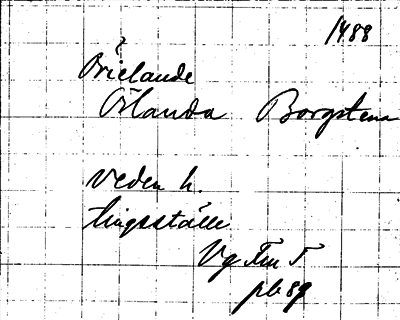 1488
?
Örielande
Östanda Borgstena
Veden h.
tingsställe
Vg Fm T
pl. 89